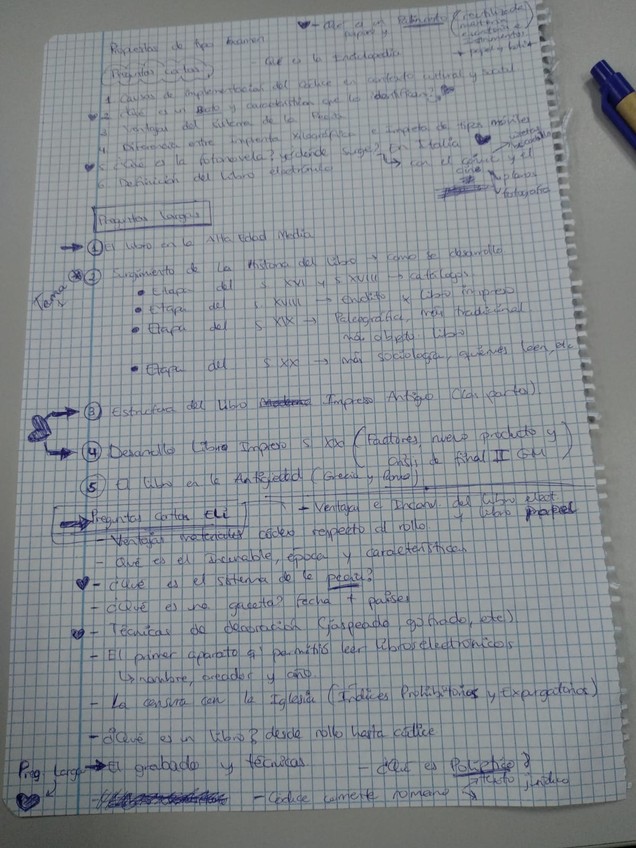 Propuestas de tipo examen
- Qué es un Palimpsesto (reutilizado
- Qué es la Enciclopedia
Preguntas Cortas
1 Causas de implementación del códice en contexto cultural y social
2 ¿Qué es un y características que lo identifican?
3 Ventajas del sistema de la Pecia
4 Diferencia entre imprenta Xilográfica e imprenta de tipos móviles
5 ¿Qué es la fotonovela? y ¿dónde surge? En Italia
↳ con el cómic y el cine
→ planos
→ fotografía
6 Definición del libro electrónico
Preguntas largas
→ 1 El libro en la Alta Edad Media
Tema
2 Surgimiento de la Historia del Libro → cómo se desarrolla
• Etapa del S XVI y S XVII → catálogos
• Etapa del S XVIII → Erudito y Libro impreso
• Etapa del S XIX → Paleográfica, más tradicional
más objeto libro
• Etapa del S XX → más sociología, quiénes leen, etc
→ 3 Estructura del Libro Impreso Antiguo (las partes)
→ 4 Desarrollo Libro Impreso S XX (Factores, nuevo producto y
crisis de final II GM)
5 El libro en la Antigüedad (Grecia y Roma)
→ Preguntas cortas Eli
- Ventajas e Inconv. del libro elect.
y libro papel
- Ventajas materiales códex respecto al rollo
- Qué es el Incunable, época y características
- ¿Qué es el sistema de la pecia?
- ¿Qué es na gaceta? fecha + países
- Técnicas de decoración (jaspeado, gofrado, etc)
- El primer aparato q permitió leer libros electrónicos
↳ nombre, creador y año
- La censura con la Iglesia (Índices Prohibitorios y Expurgatorios)
- ¿Qué es un libro? desde rollo hasta códice
Preg Larga → El grabado y técnicas
- ¿Qué es Políptico?
jurídico
- Códice romano